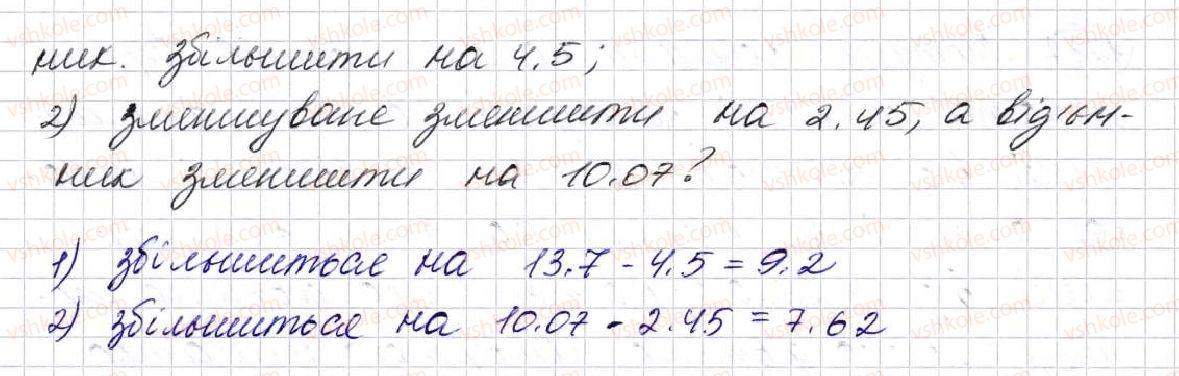 ник. збільшити на 4.5;
2) зменшуване зменшити на 2.45, а від'єм-
ник зменшити на 10.07?
1) збільшиться на 13.7 - 4.5 = 9.2
2) збільшиться на 10.07 - 2.45 = 7.62